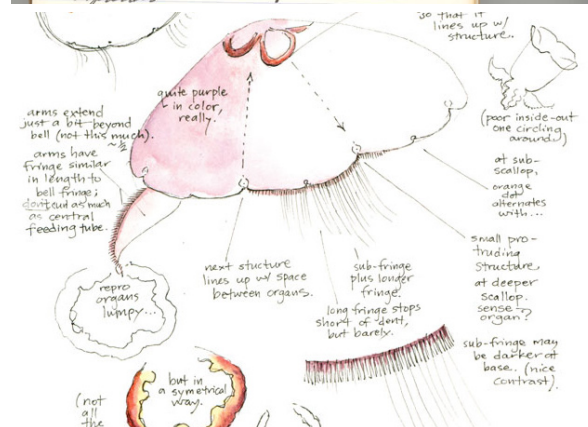 so that it
lines up w/
structure.
quite purple
in color,
really.
arms extend
just a bit beyond
bell (not this much).
arms have
fringe similar
in length to
bell fringe;
don't end as much
as central
feeding tube.
(poor inside-out
one circling
around.)
at sub-
scallop,
orange
dot
alternates
with...
small pro-
truding
structure
at deeper
scallop.
sense
organ?
next stucture
lines up w/ space
between organs.
sub-fringe
plus longer
fringe.
long fringe stops
short of dent,
but barely.
repro
organs
lumpy...
sub-fringe may
be darker at
base.. (nice
contrast).
but in
a symetrical
way.
(not
all
the